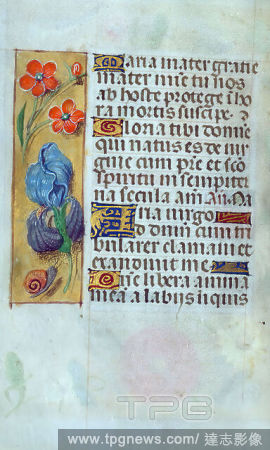 Maria mater gratie
mater mie tu nos
ab hoste protege i hora
mortis suscipe.
Gloria tibi domine
qui natus es de virgine
cum pre et sco
spiritu in sempiterna
secula am. An.
virgo
Ad dnm cum tribularer
clamavi et
exaudivit me
Dne libera anima
mea a labijs iniquis
TPG
www.tpgnews.com/達志影像